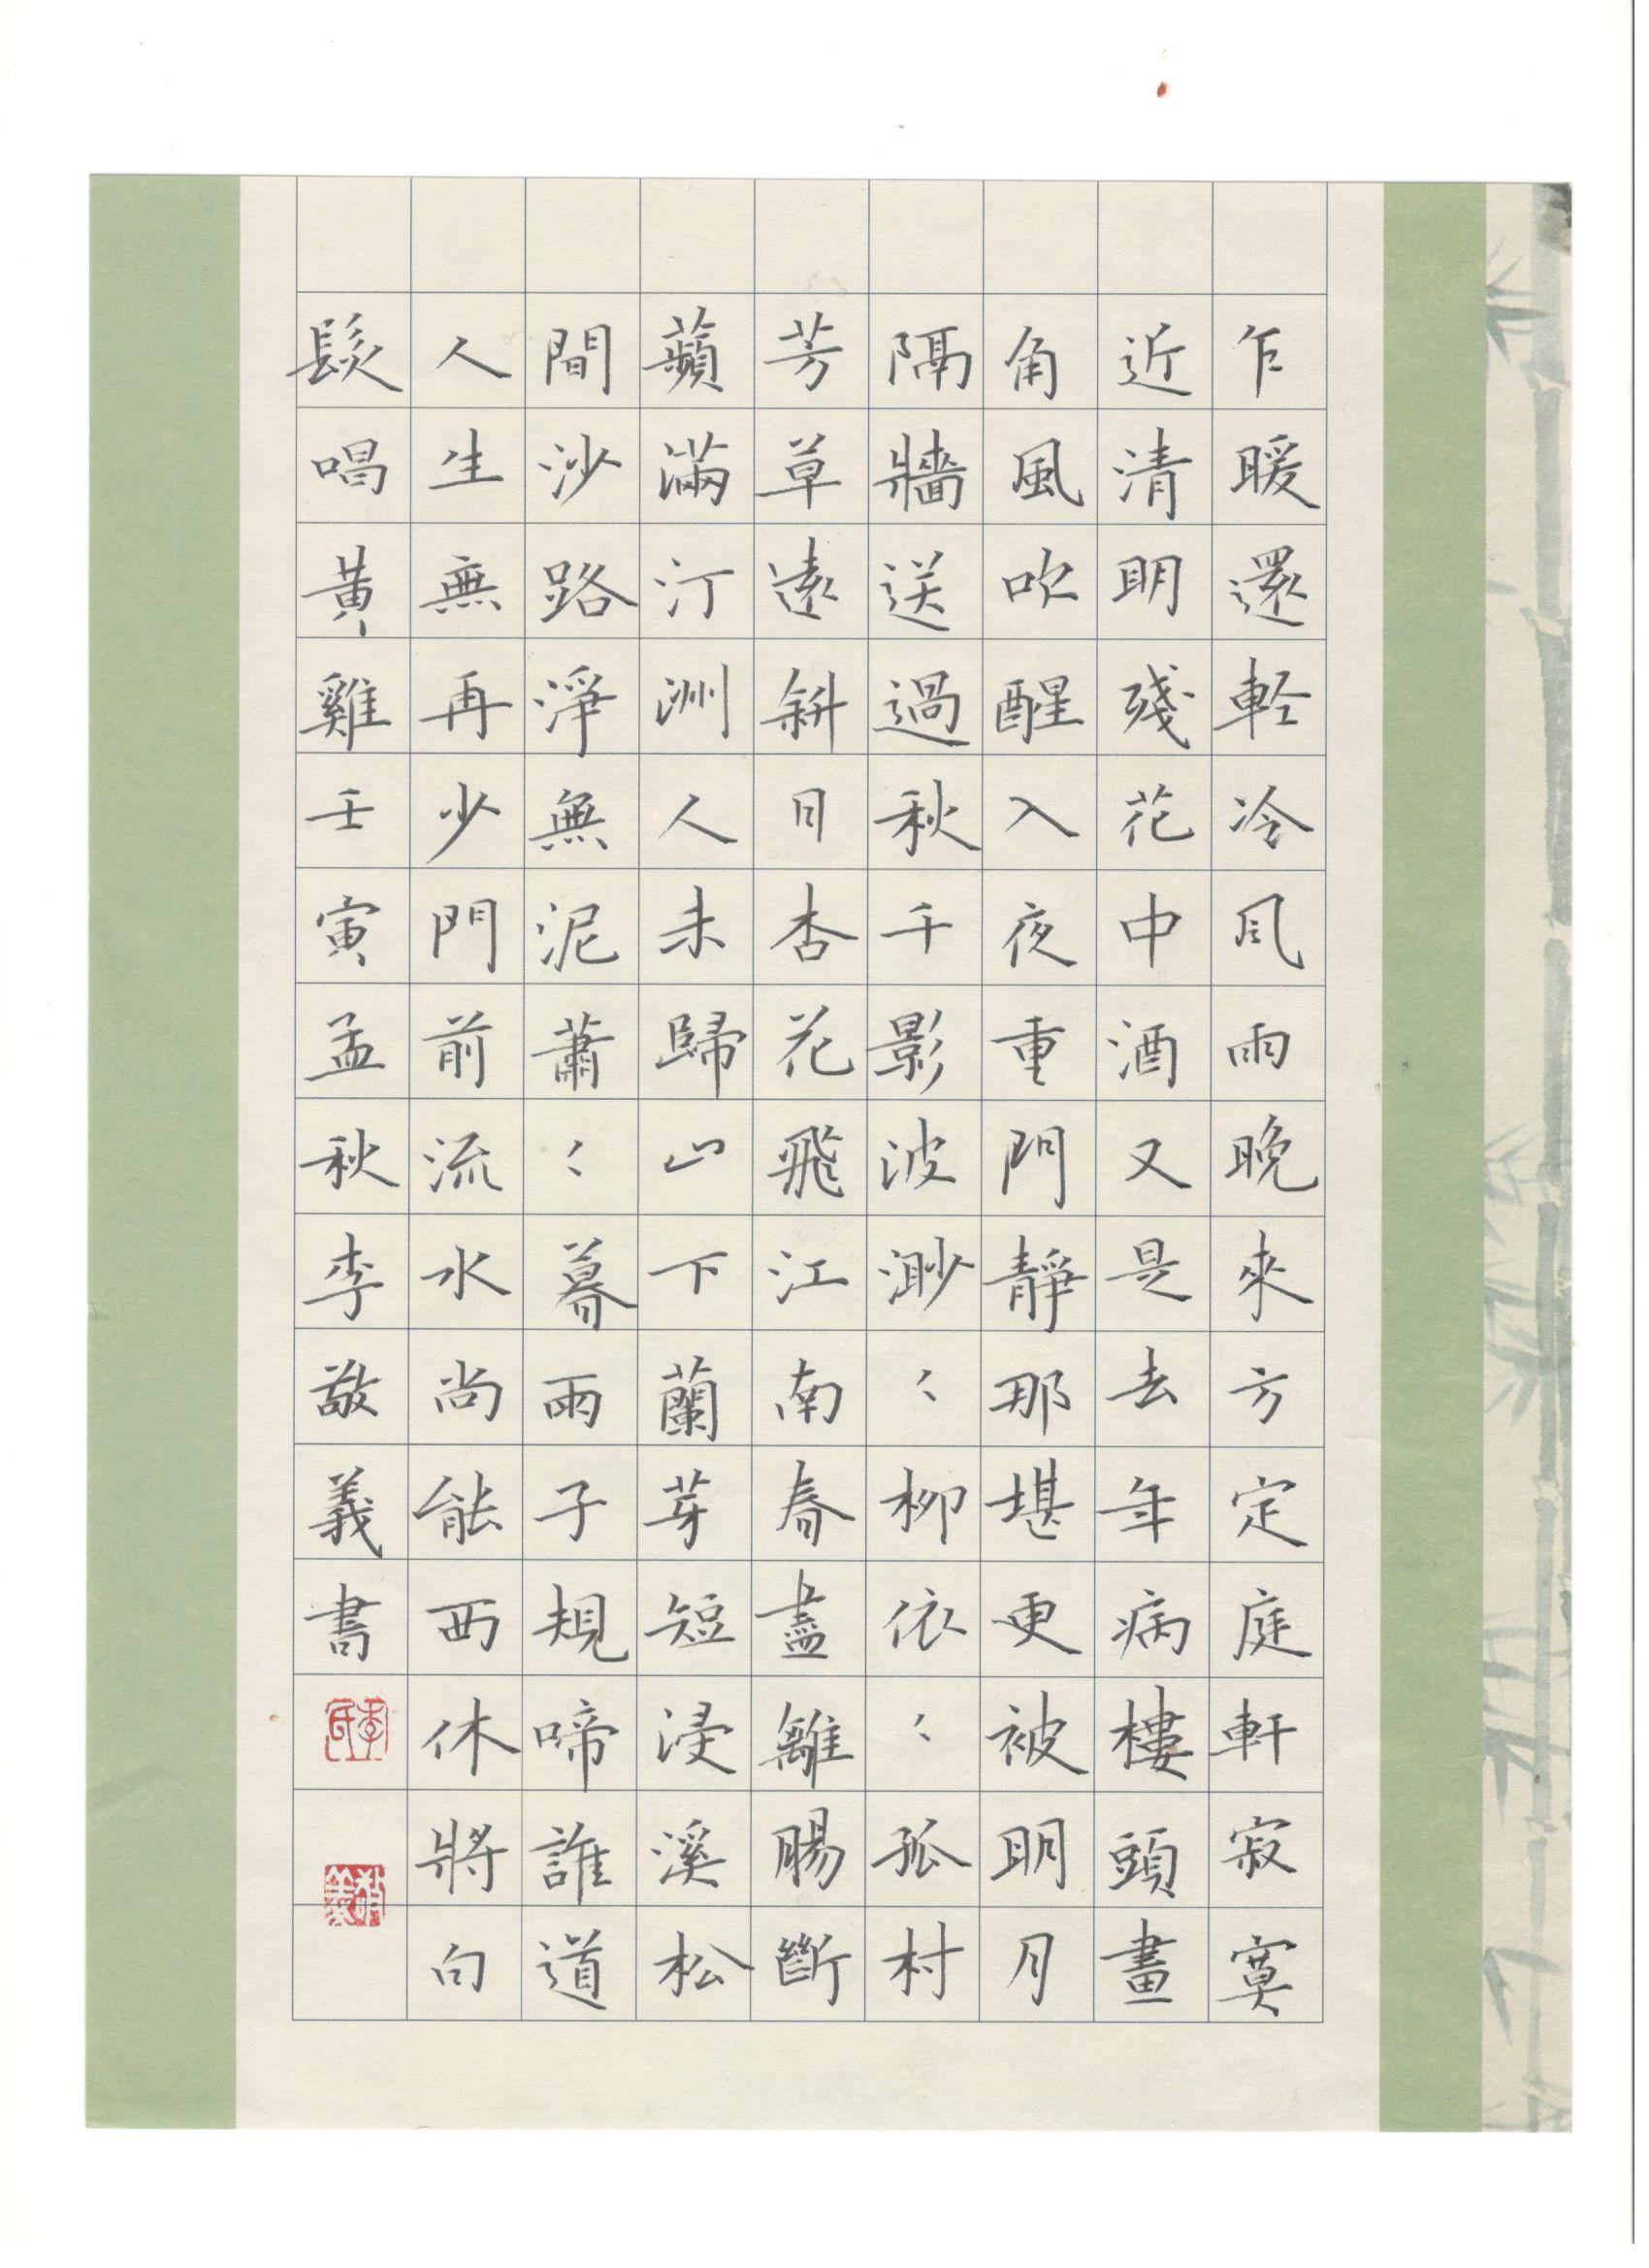 乍暖還輕冷風雨晚來方定庭軒寂寞
近清明殘花中酒又是去年病樓頭畫
角風吹醒入夜重門靜那堪更被明月
隔牆送過秋千影波渺〻柳依〻孤村
芳草遠斜日杏花飛江南春盡離腸斷
蘋滿汀洲人未歸山下蘭芽短浸溪松
間沙路淨無泥蕭〻暮雨子規啼誰道
人生無再少門前流水尚能西休將白
髮唱黃雞壬寅孟秋李敬義書
李氏
敬義